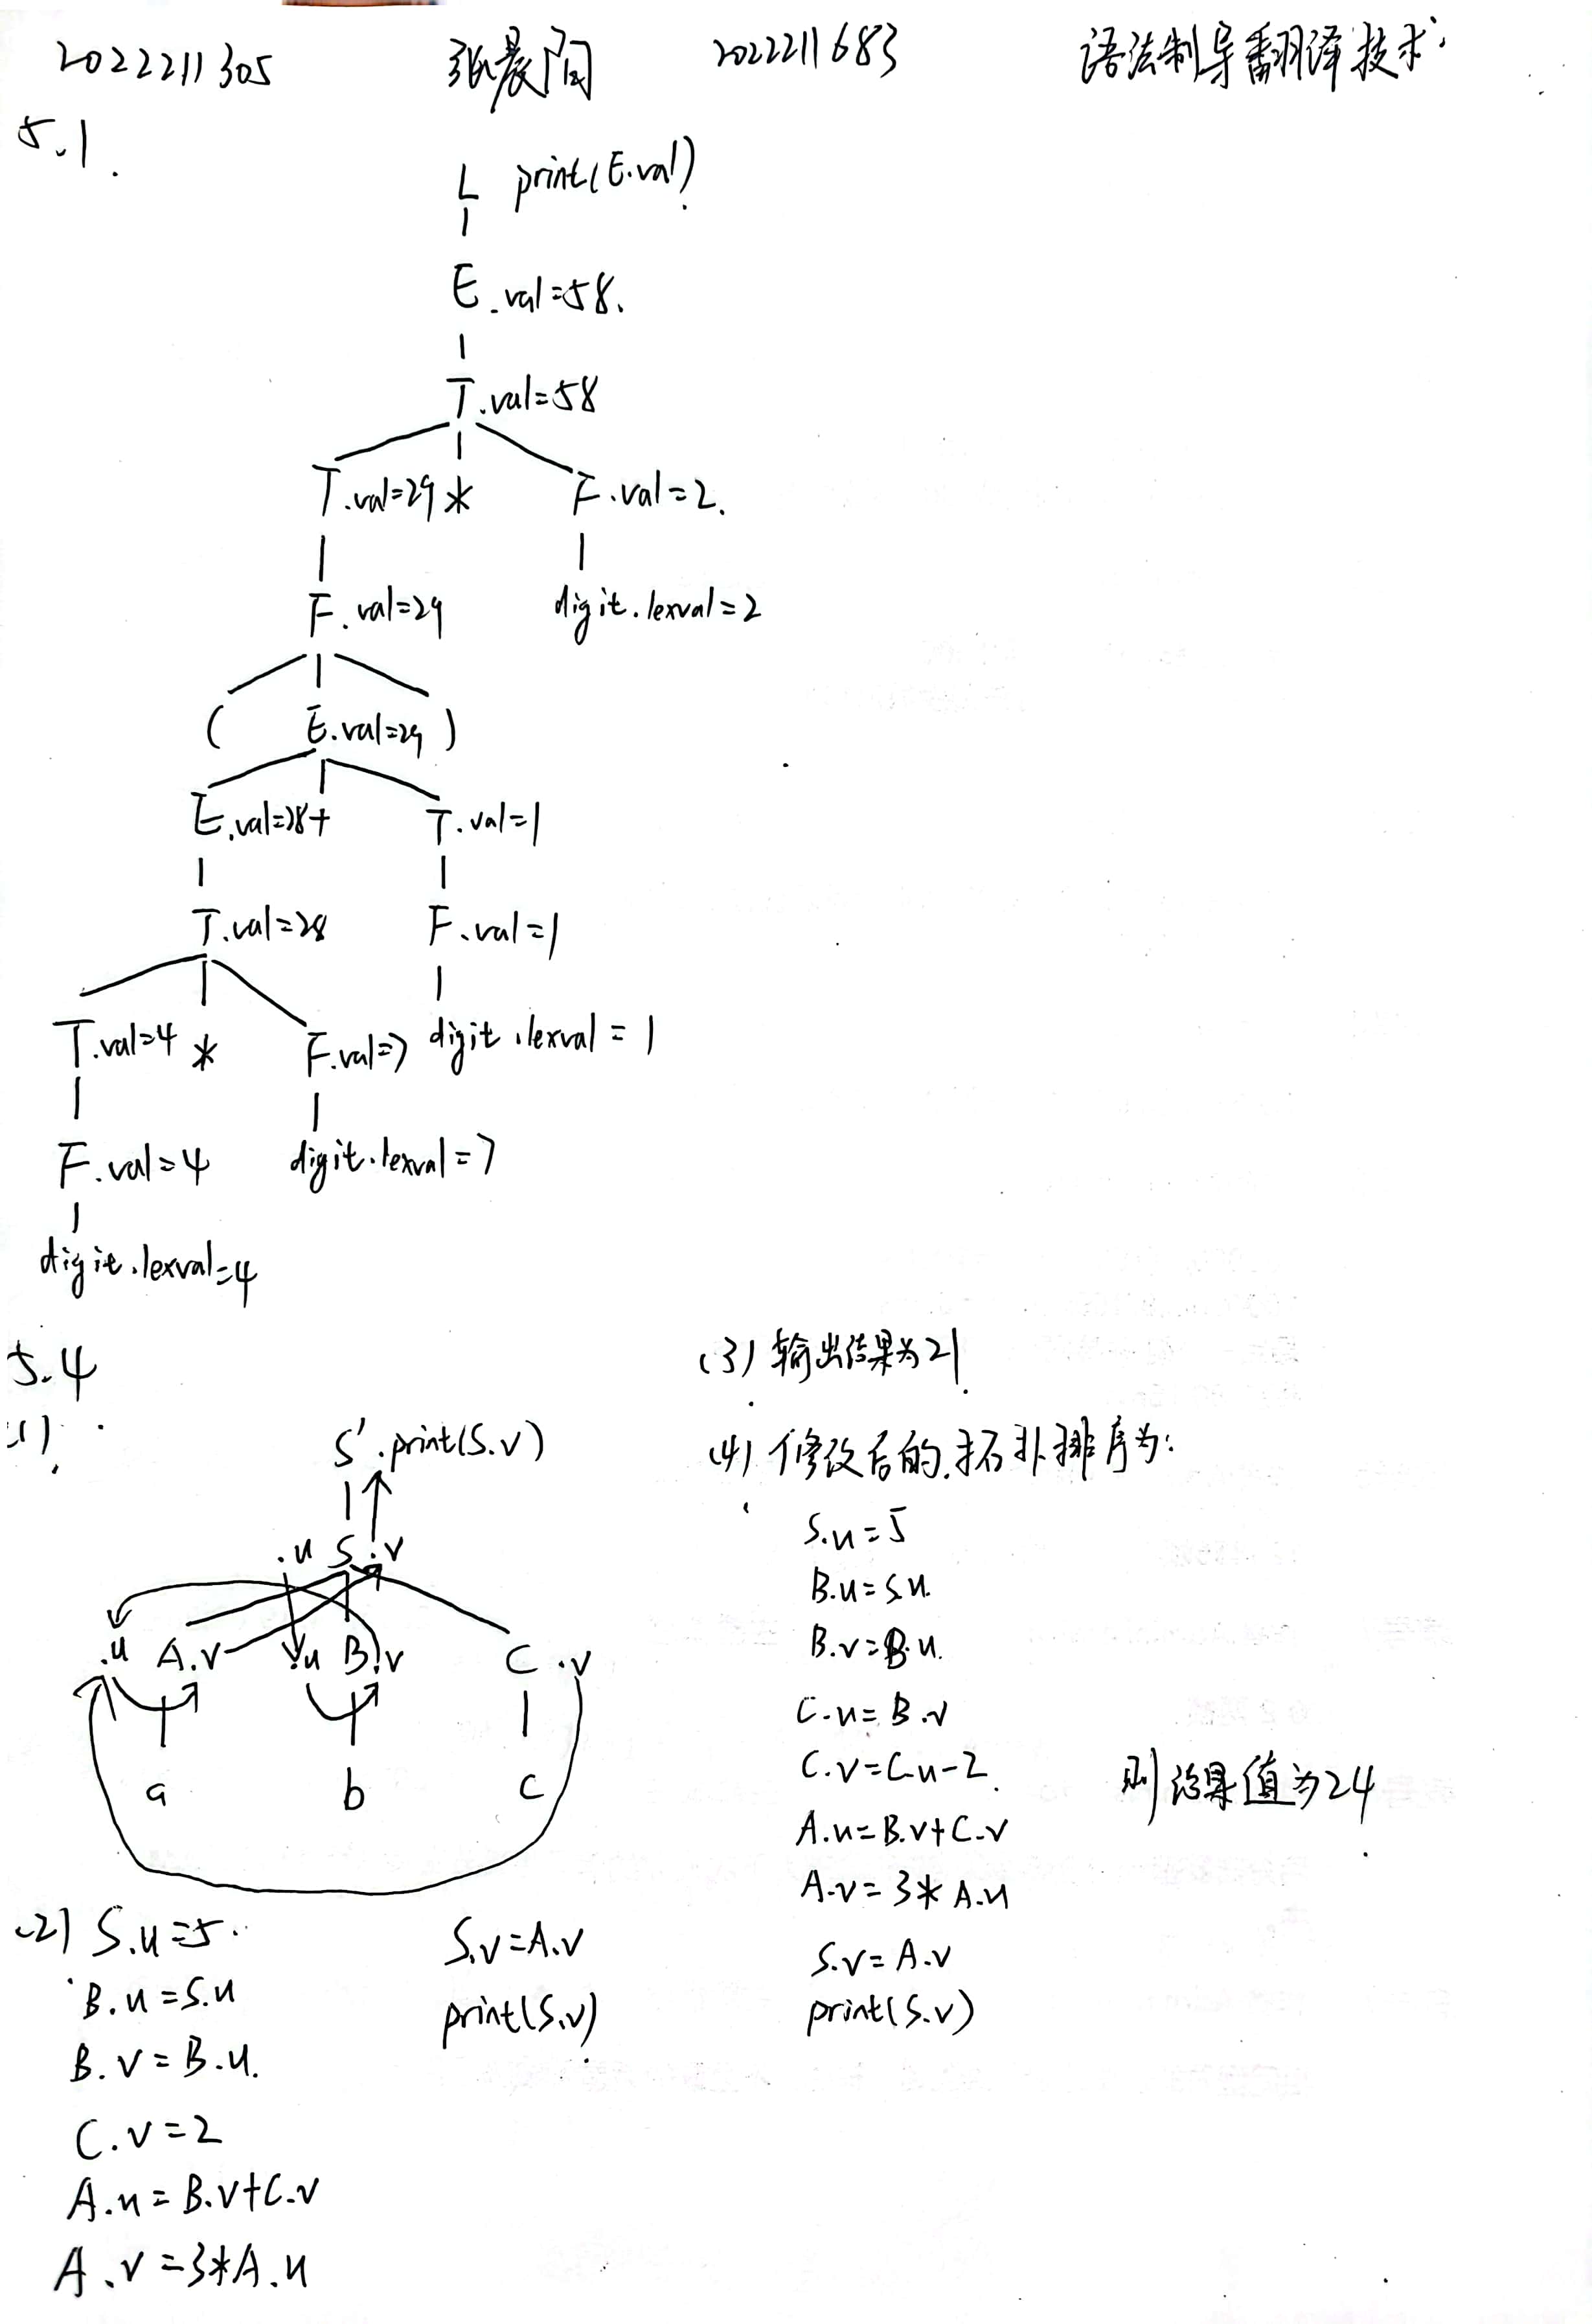 2022211305 张晨阳 2022211683 语法制导翻译技术.
5.1.
L print(E.val)
E.val=58.
T.val=58
T.val=29 * F.val=2.
F.val=29 digit.lexval=2
( E.val=29 )
E.val=28 + T.val=1
T.val=28 F.val=1
T.val=4 * F.val=7 digit.lexval=1
F.val=4 digit.lexval=7
digit.lexval=4
5.4
(1).
S'.print(S.v)
.u S.v
.u A.v .u B.v C.v
a b c
(2) S.u=5.
B.u=S.u
B.v=B.u.
C.v=2
A.u=B.v+C.v
A.v=3*A.u
S.v=A.v
print(S.v).
(3) 输出结果为21.
(4) 修改后的拓扑排序为:
S.u=5
B.u=S.u.
B.v=B.u.
C.u=B.v
C.v=C.u-2.
A.u=B.v+C.v
A.v=3*A.u
S.v=A.v
print(S.v)
则结果值为24.